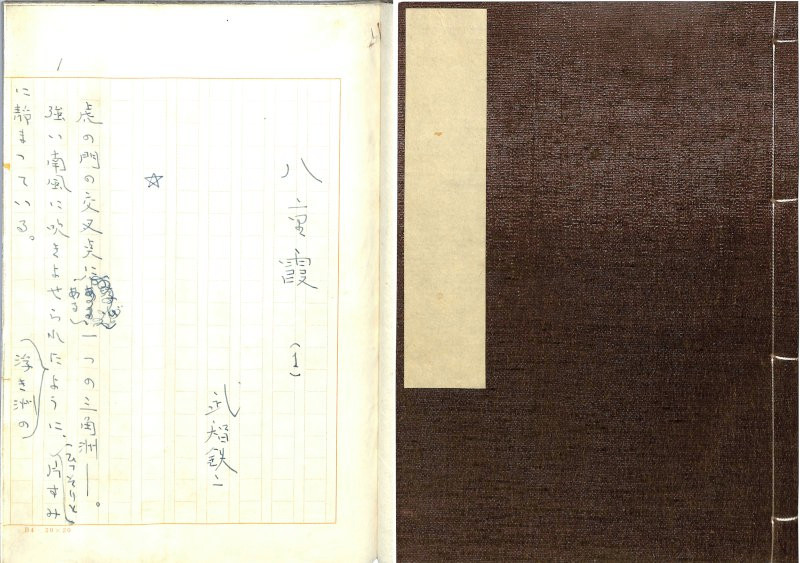 1
八重霞
(1)
武智鉄二
虎の門の交叉点に
ある
一つの三角洲――。
強い南風に吹きよせられたように、片すみ
ひっそりと
に静まっている。
浮き洲の
B4 20×20